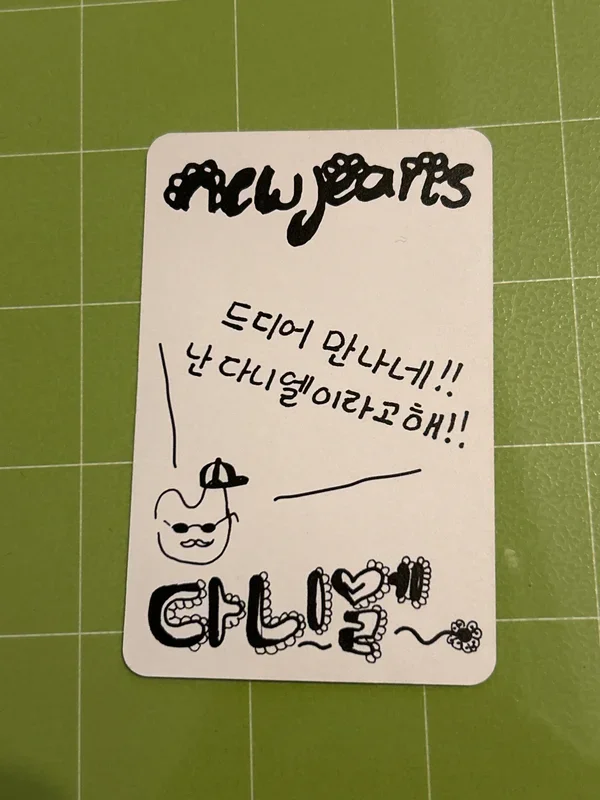 newjeans
드디어 만나네!!
난 다니엘이라고해!!
다니엘